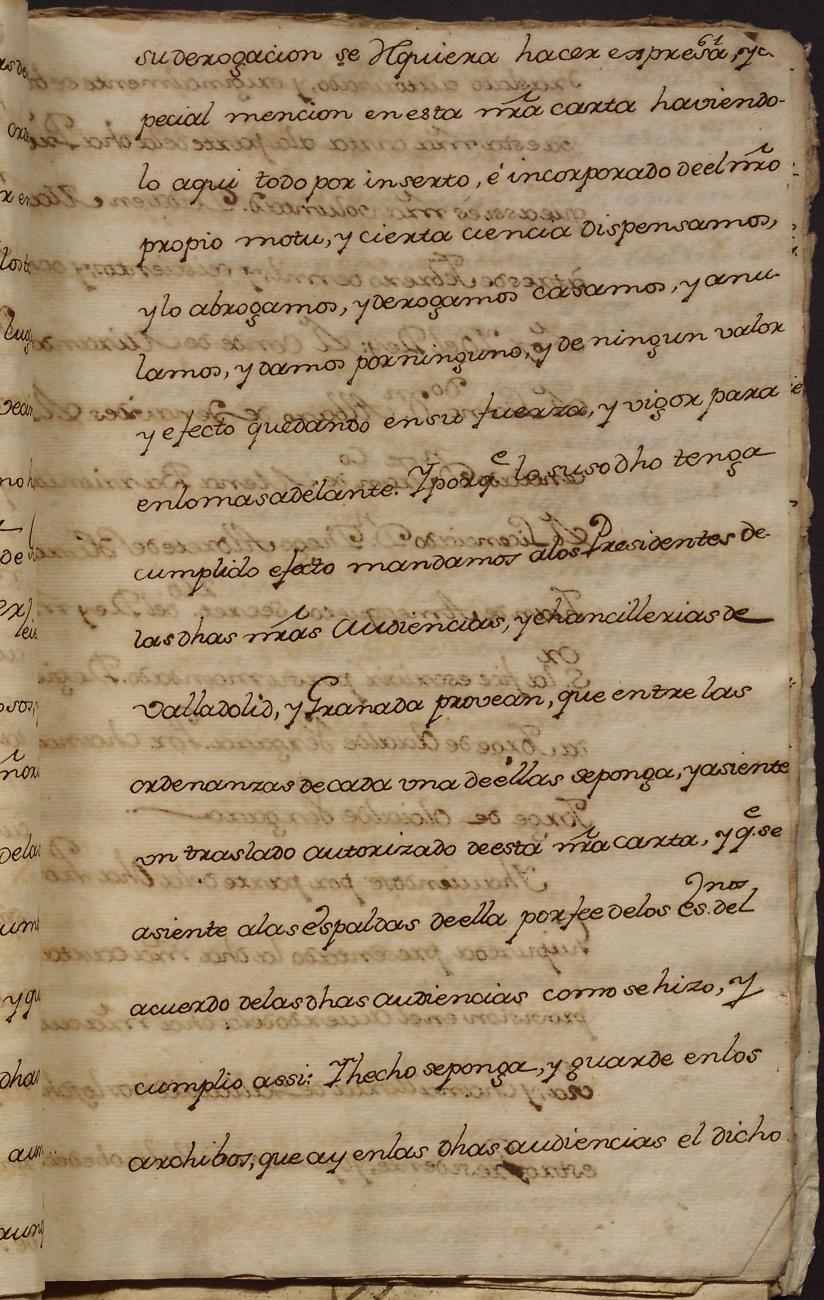 61
su derogacion se rrequiera hacer expresa, y es
pecial mencion en esta nr̃a carta haviendo-
lo aqui todo por inserto, é incorporado de el nr̃o
propio motu, y cierta ciencia dispensamos,
y lo abrogamos, y derogamos casamos, y anu-
lamos, y damos por ninguno, y de ningun valor
y efecto quedando en su fuerza, y vigor para
en lo mas adelante. Y porq^e lo suso dho tenga
cumplido efecto mandamos a los Presidentes de
las dhas nr̃as Audiencias, y chancillerias de
Valladolid, y Granada provean, que entre las
ordenanzas de cada una de éllas se ponga, y asiente
un traslado autorizado de esta nr̃a carta, y q^e. se
asiente a las espaldas de ella por fee de los es^nos. del
acuerdo de las dhas audiencias como se hizo, y
cumplio assi: Y hecho se ponga, y guarde en los
archibos, que ay en las dhas audiencias el dicho